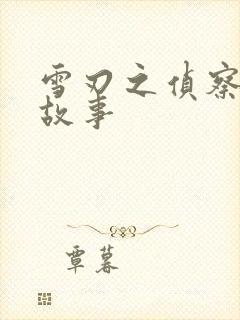 雪刃之偵察
故事
覃暮